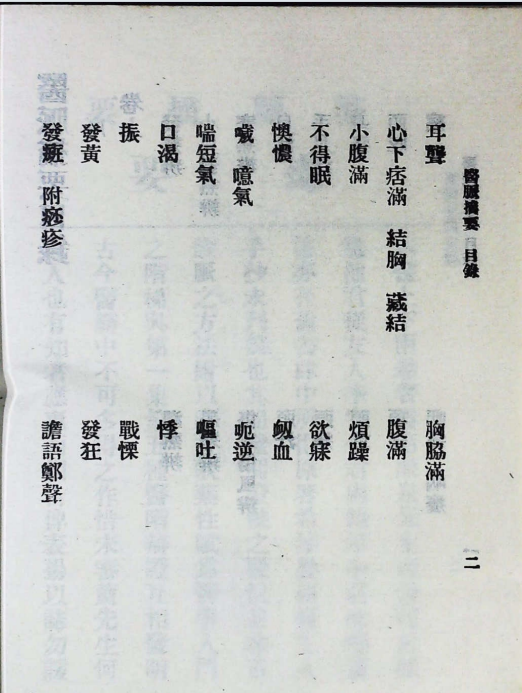 醫脈摘要 目錄 二
耳聾 胸脇滿
心下痞滿 結胸 藏結 腹滿
小腹滿 煩躁
不得眠 欲寐
懊憹 衂血
噦 噫氣 呃逆
喘短氣 嘔吐
口渴 悸
振 戰慄
發黃 發狂
發癍 附痧疹 譫語鄭聲